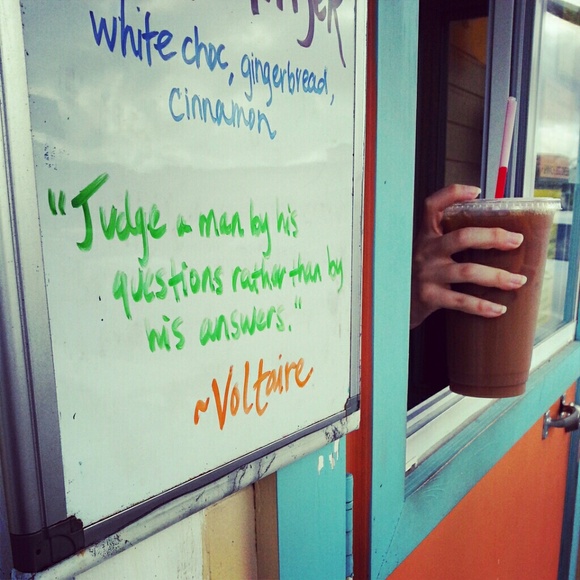 white choc, gingerbread,
cinnamon
"Judge a man by his
questions rather than by
his answers."
~Voltaire